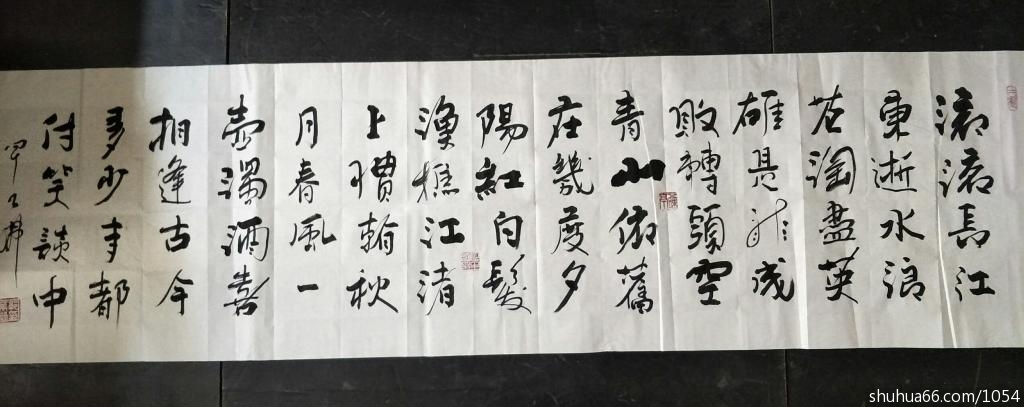 滚滚長江
東逝水浪
花淘盡英
雄是非成
敗轉頭空
青山依舊
在幾度夕
陽紅白髮
漁樵江渚
上慣翰秋
月春風一
壺濁酒喜
相逢古今
多少事都
付笑談中
shuhua66.com/1054